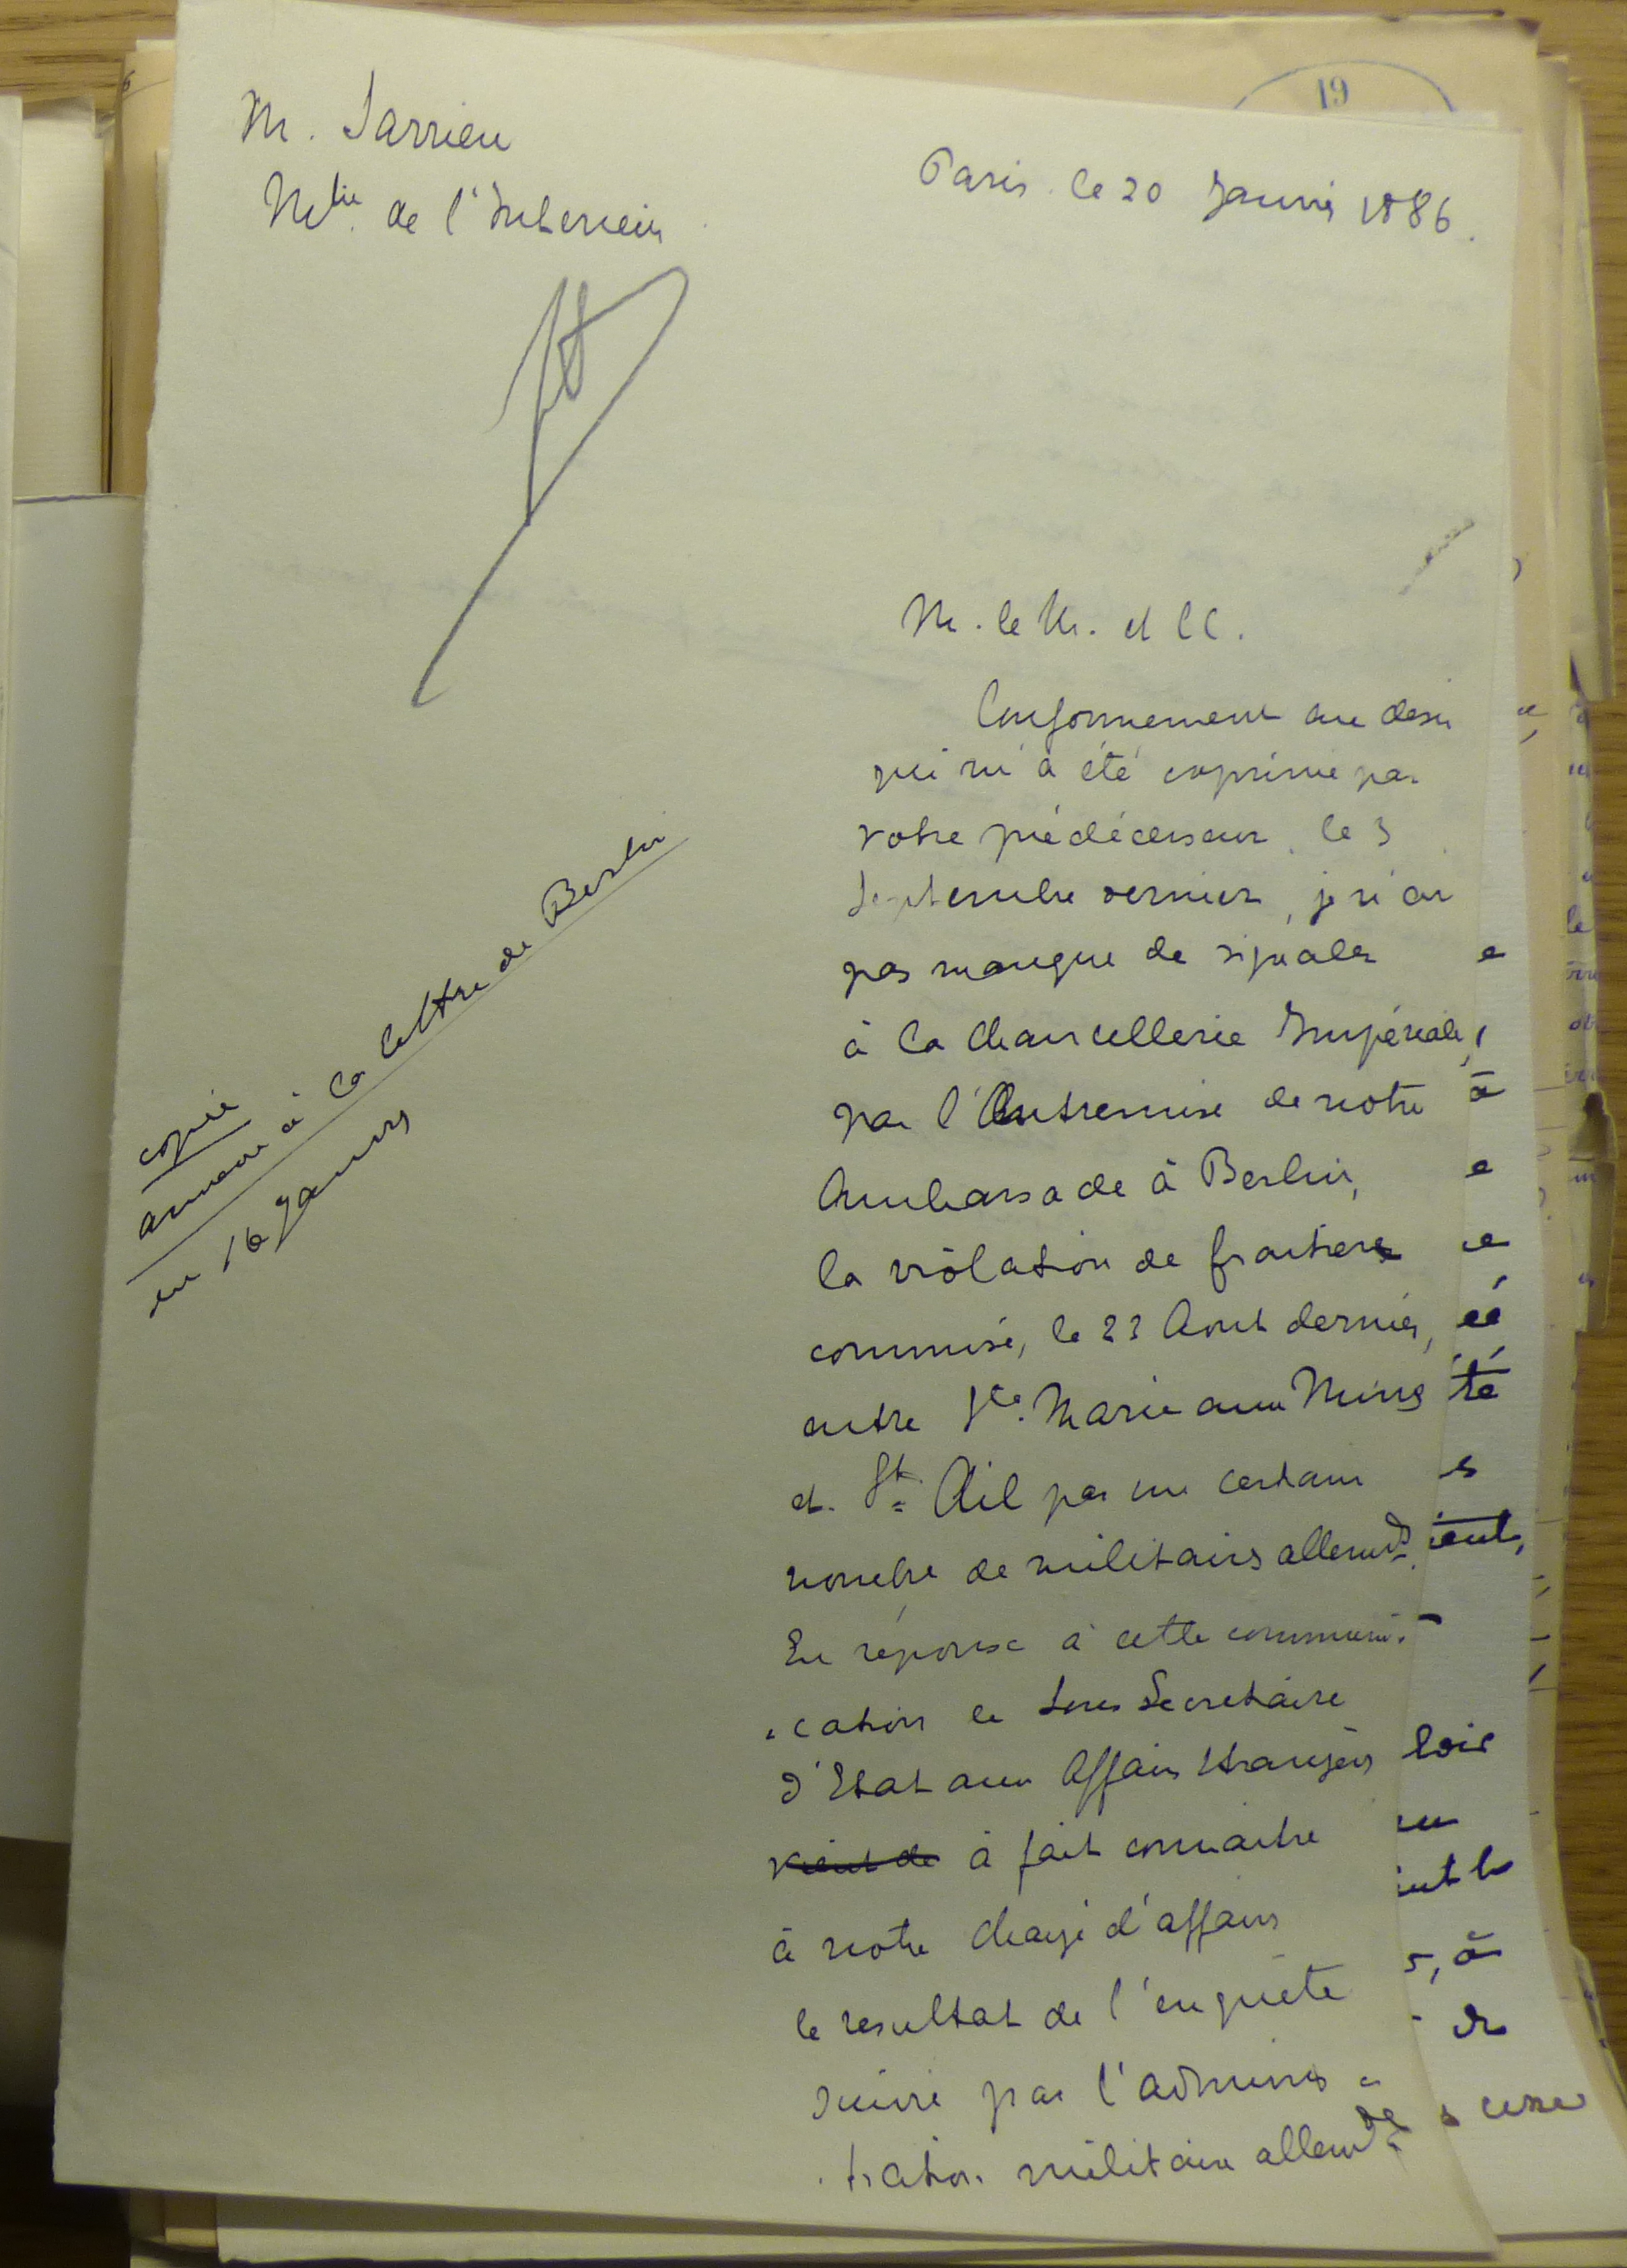 19
M. Sarrien
Mtre de l'Interieur
Paris. le 20 Janvier 1886.
M. le M. et CC.
Conformement au desir
qui m'a été exprimé par
votre prédécesseur, le 3
Septembre dernier, je n'ai
pas manqué de signaler
à la Chancellerie Impériale,
par l'Entremise de notre
Ambassade à Berlin,
la violation de frontiere
commise, le 23 Aout dernier,
entre Ste. Marie aux Mines
et St. Ail par un certain
nombre de militaires allemds.
En réponse à cette communi-
cation le Sous Secretaire
d'Etat aux Affaires Etrangères
vient de à fait connaitre
à notre chargé d'affaires
le resultat de l'enquête
suivie par l'adminis-
tration militaire allemde
copie
annexe à la lettre de Berlin
du 16 Janvier